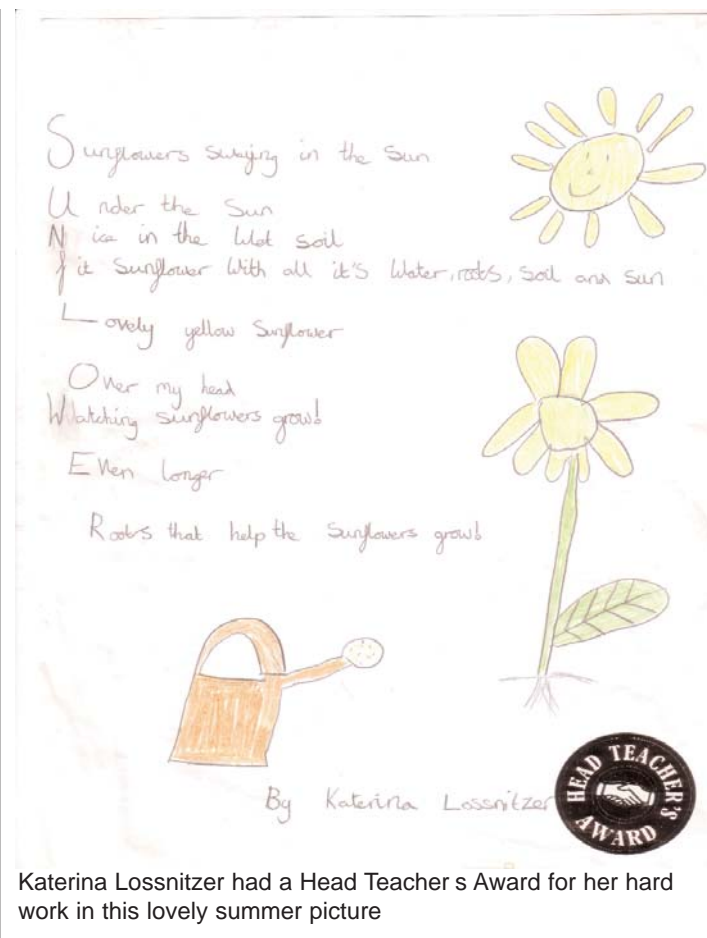 Sunflowers swaying in the Sun
Under the Sun
Nice in the Wet soil
fit Sunflower With all it's Water, roots, soil and sun
Lovely yellow Sunflower
Over my head
Watching sunflowers grow!
Even Longer
Roots that help the Sunflowers grow!
By Katerina Lossnitzer
HEAD TEACHER'S AWARD
Katerina Lossnitzer had a Head Teacher s Award for her hard
work in this lovely summer picture